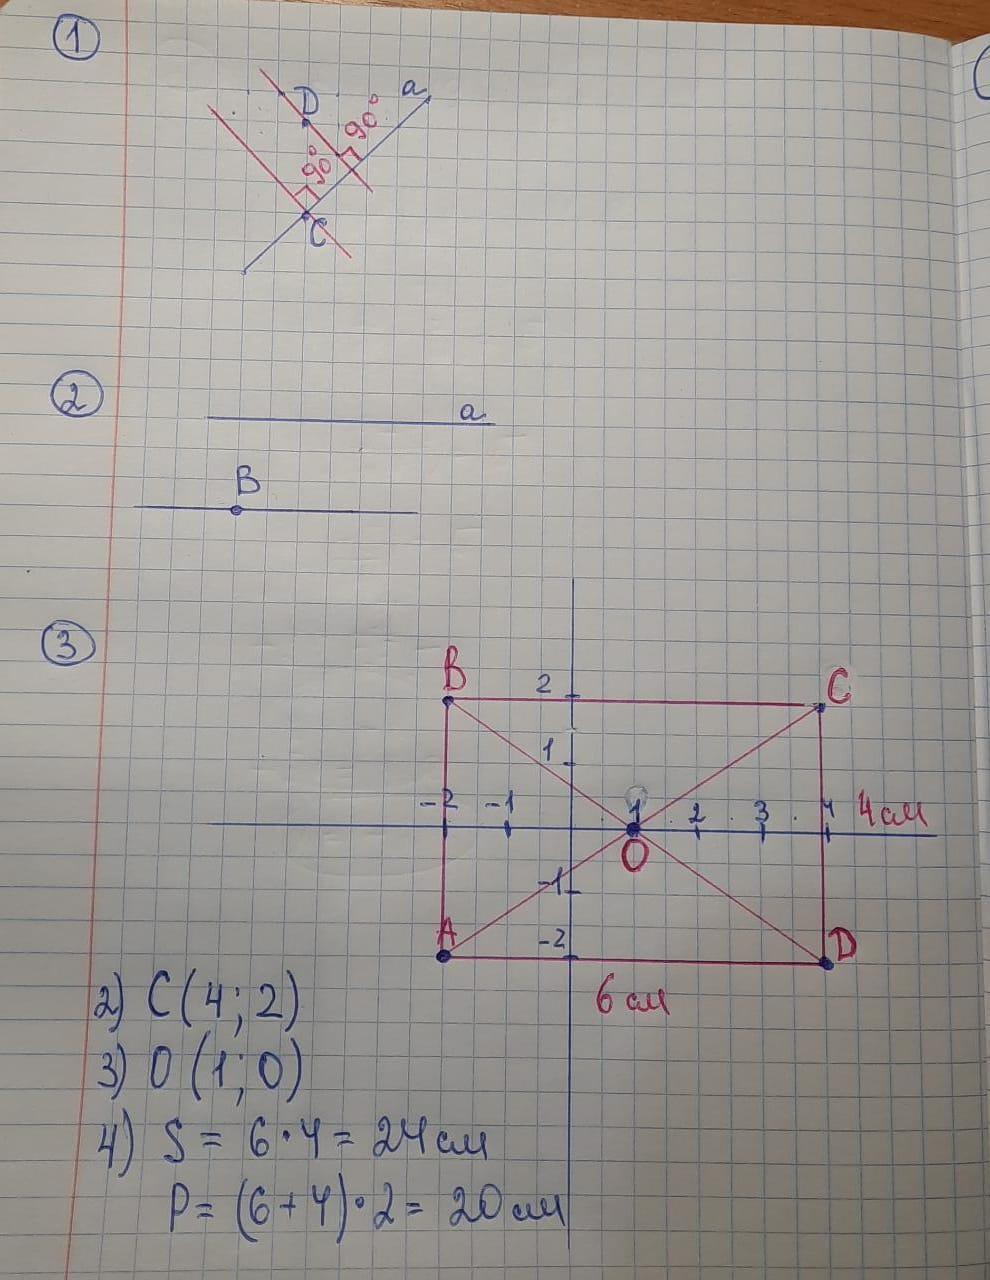 1
D
a
90°
90°
C
2
a
B
3
B
2
C
1
-2 -1 1 2 3 4 4 см
O
-1
A
-2
D
6 см
2) C(4; 2)
3) O(1; 0)
4) S = 6·4 = 24 см
P = (6+4)·2 = 20 см